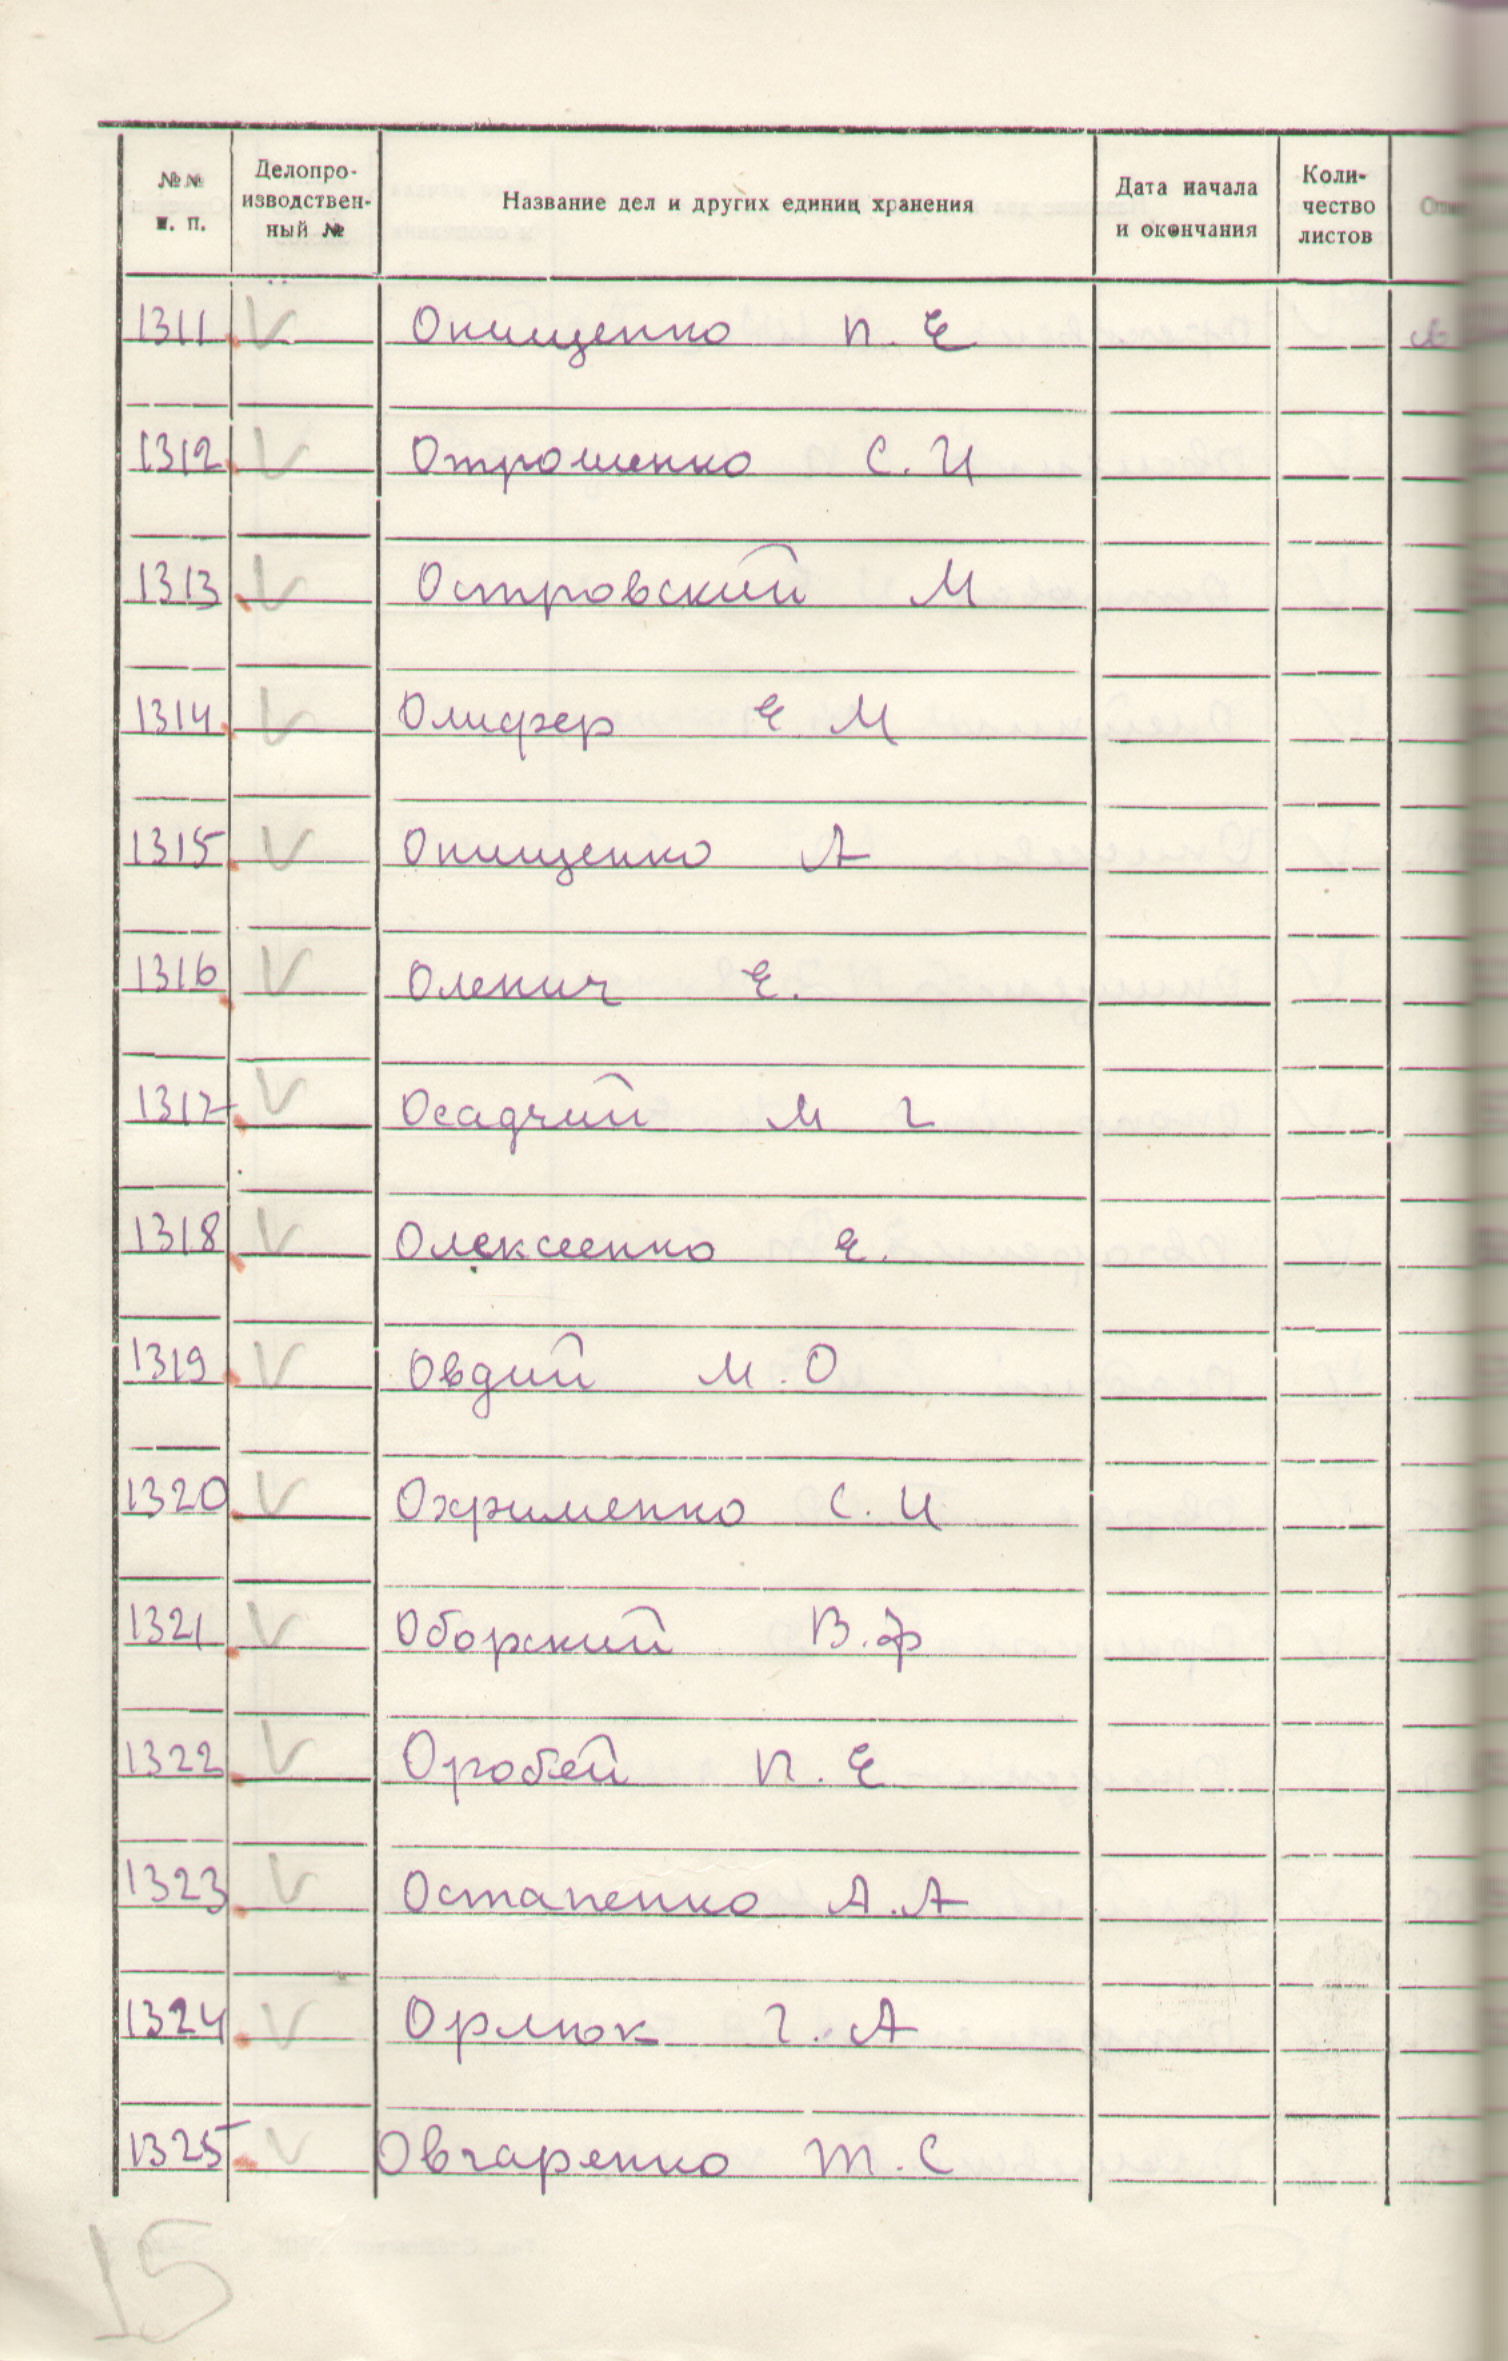 №№ п. п. Делопро-изводствен-ный № Название дел и других единиц хранения Дата начала и окончания Коли-чество листов
1311 V Онищенко П. Е
1312 V Отрошенко С. И
1313 V Островский М
1314 V Олифер Е М
1315 V Онищенко А
1316 V Оленич Е.
1317 V Осадчий М Г
1318 V Олексеенко Е.
1319 V Овдий М. О
1320 V Охрименко С. И
1321 V Оборский В. Ф
1322 V Оробей П. Е
1323 V Остапенко А. А
1324 V Орлюк Г. А
1325 V Овчаренко Т. С
15